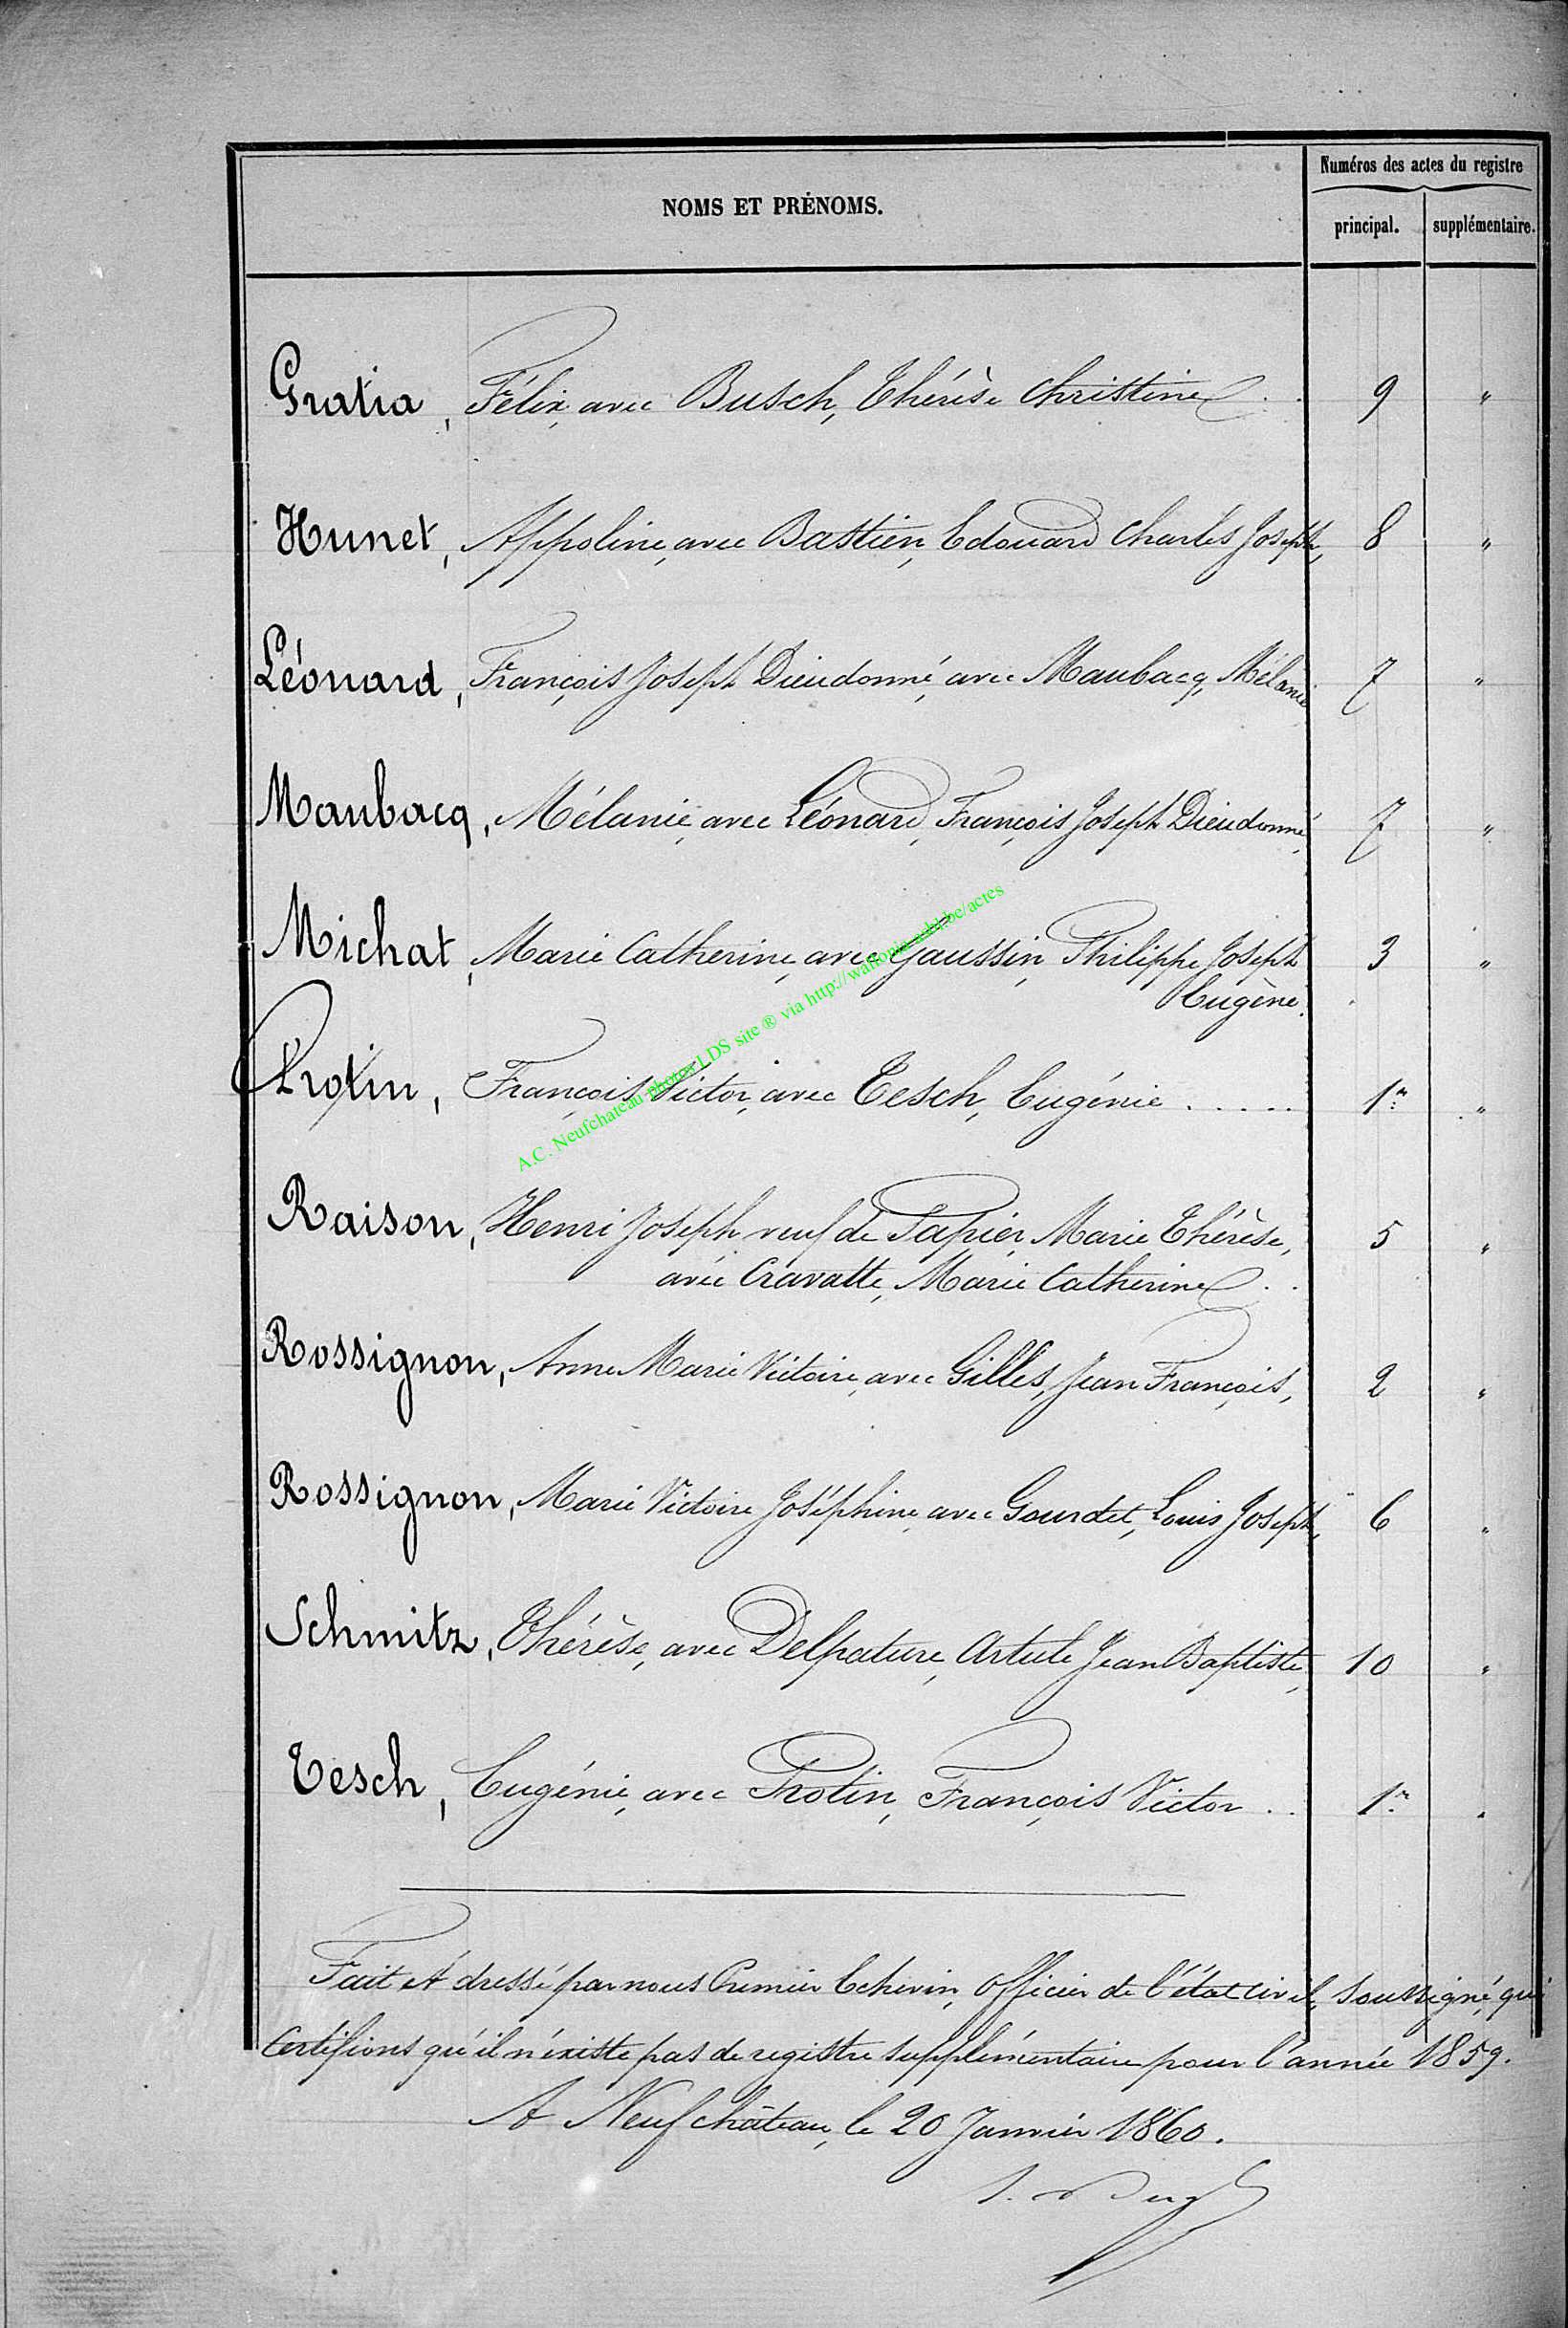 Numéros des actes du registre
NOMS ET PRÉNOMS.
principal. supplémentaire.
Gratia, Félix, avec Busch, Thérèse Christine . . 9 "
Hunet, Appoline, avec Bastien, Edouard Charles Joseph, 8 "
Léonard, François Joseph Dieudonné, avec Maubacq, Mélanie 7 "
Maubacq, Mélanie, avec Léonard, François Joseph Dieudonné, 7 "
Michat, Marie Catherine, avec Gaussin, Philippe Joseph 3 "
Eugène.
Protin, François Victor, avec Tesch, Eugénie . . . . . 1er "
Raison, Henri Joseph, veuf de Papier, Marie Thérèse, 5 "
avec Cravatte, Marie Catherine . .
Rossignon, Anne Marie Victoire, avec Gilles, Jean François, 2 "
Rossignon, Marie Victoire Joséphine, avec Gourdet, Louis Joseph, 6 "
Schmitz, Thérèse, avec Delpature, Jean Baptiste, 10 "
Tesch, Eugénie, avec Protin, François Victor . . 1er "
Fait et dressé par nous Premier Echevin, officier de l'état civil, soussigné, qui
Certifions qu'il n'existe pas de registre supplémentaire pour l'année 1859.
A Neufchâteau, le 20 Janvier 1860.
A.C. Neufchateau photos LDS site ® via http://wallonia-asbl.be/actes